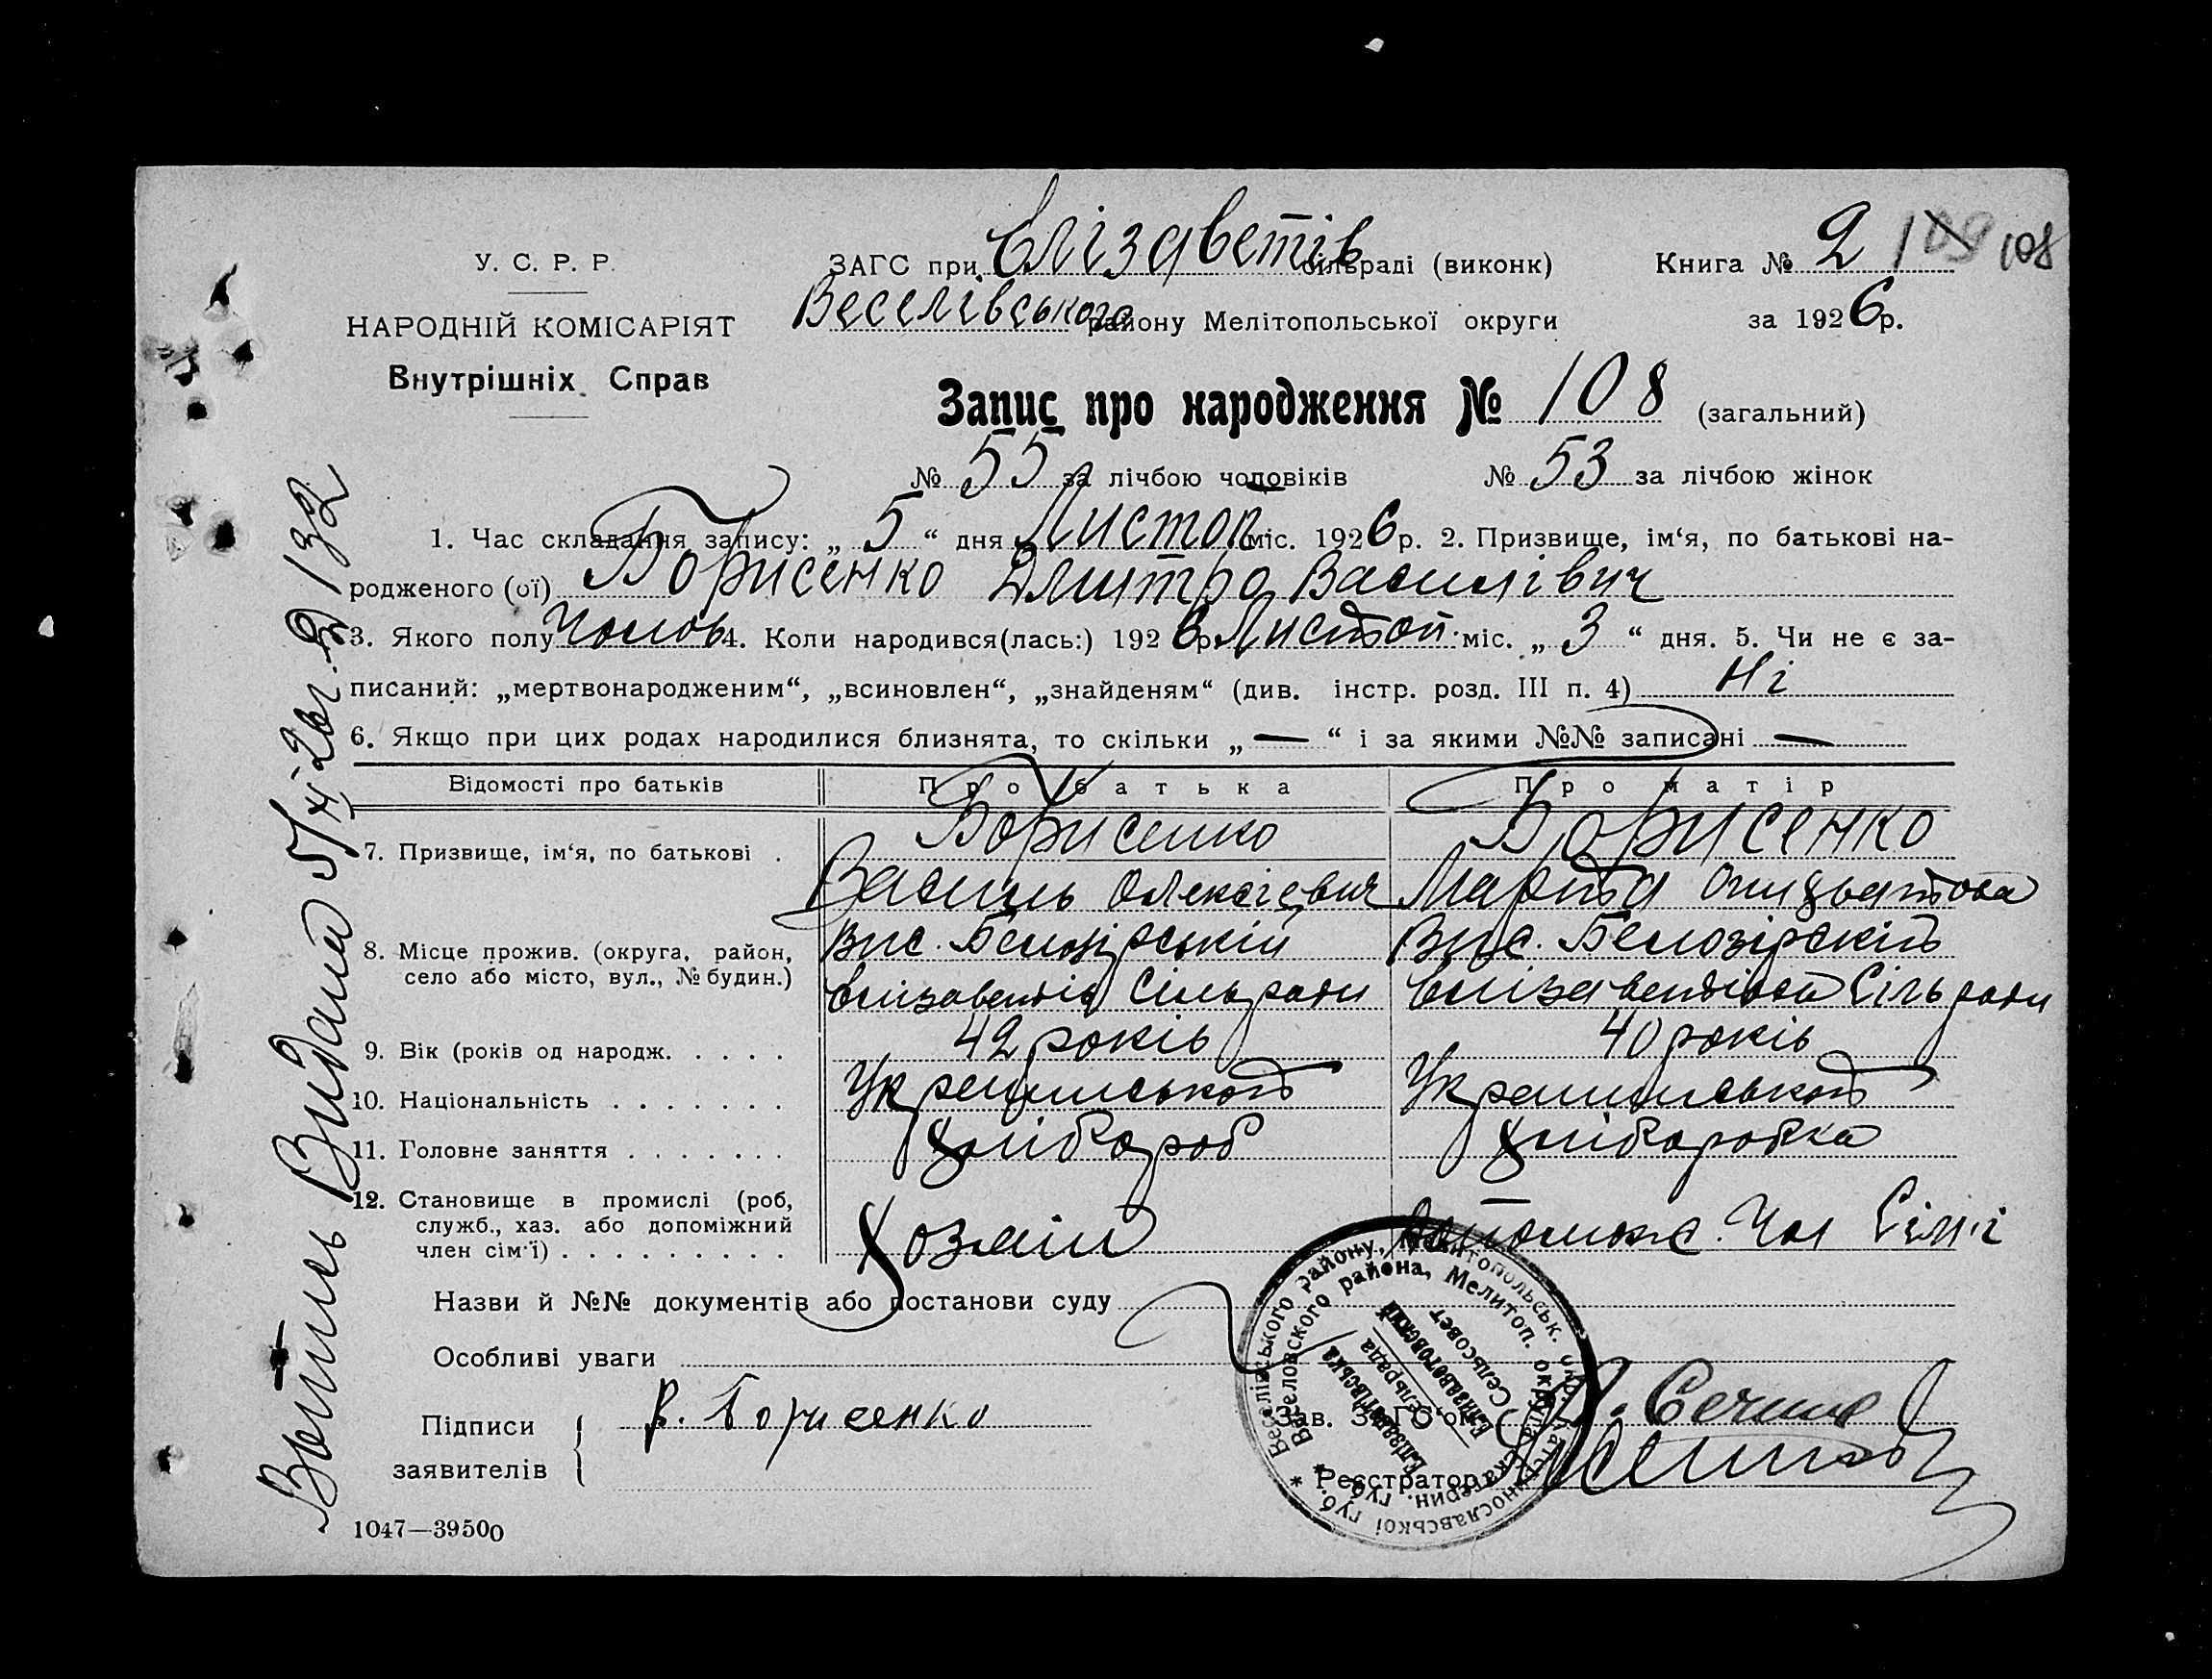 У. С. Р. Р.
НАРОДНІЙ КОМІСАРІЯТ
Внутрішніх Справ
ЗАГС при Єлізаветів сільраді (виконк)
Веселівського району Мелітопольської округи
Книга № 2 109 108
за 1926 р.
Запис про народження № 108 (загальний)
№ 55 за лічбою чоловіків № 53 за лічбою жінок
1. Час складання запису: „ 5 “ дня Листоп міс. 1926 р. 2. Призвище, ім‘я, по батькові на-
родженого (ої) Борисенко Дмитро Василівич
3. Якого полу Чолов 4. Коли народився(лась:) 1926 р. Листоп. міс. „ 3 “ дня. 5. Чи не є за-
писаний: „мертвонародженим“, „всиновлен“, „знайденям“ (див. інстр. розд. III п. 4) Ні
6. Якщо при цих родах народилися близнята, то скільки „ — “ і за якими №№ записані —
Відомості про батьків Про батька Про матір
7. Призвище, ім‘я, по батькові . Борисенко Борисенко
Василь Олексієвич Марфа
8. Місце прожив. (округа, район, село або місто, вул., № будин.)
Вис. Белозірській Вис. Белозірскій
Єлізаветів Сільради Єлізаветівской Сільради
9. Вік (років од народж. . . . . 42 років 40 років
10. Національність . . . . . . . Украинськой Украинськой
11. Головне заняття . . . . . . . Хлібороб Хліборобка
12. Становище в промислі (роб,
служб., хаз. або допоміжний
член сім‘ї) . . . . . . . . . Хозяін допомож. Чл Сімі
Назви й №№ документів або постанови суду
Особливі уваги
Підписи
заявителів
В. Борисенко
Зав. ЗАГС‘ом
Реєстратор
1047—39500
Витяг Видано 5/XI-26г. № 132
* Веселівського району, Мелітопольськ. окр. Катеринославської губ.
* Веселовского района, Мелитоп. округа Екатерин. губ.
Єлізаветівська
сельрада
Елизаветовский
Сельсовет